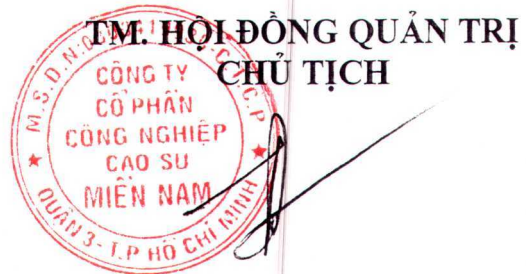 TM. HỘI ĐỒNG QUẢN TRỊ
CHỦ TỊCH
CÔNG TY
CỔ PHẦN
CÔNG NGHIỆP
CAO SU
MIỀN NAM
M.S.D.N:
C.P
QUẬN 3 - T.P HỒ CHÍ MINH